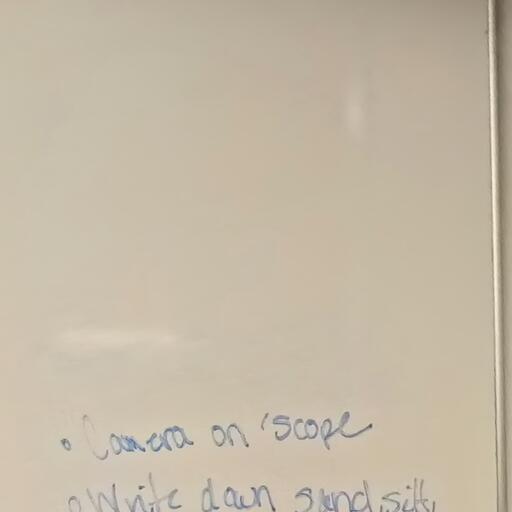 • Camera on 'scope
• Write down sand, silt,